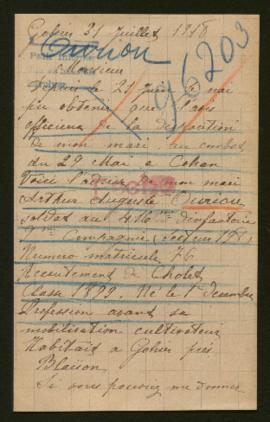 Gohier 31 Juillet 1918
96203
Monsieur
Depuis le 21 Juin je n'ai
pu obtenir que l'avis
officieux de la disparition
de mon mari au combat
du 29 Mai a Cohan
Voici l'adresse de mon mari
Arthur Auguste
soldat au 416me d'infanterie
Compagnie, Secteur
Numero matricule 76
Recrutement de Cholet
Classe 1899. Né le 1er decembre
Profession avant sa
mobilisation cultivateur
Habitait a Gohier près
Blaison
Si vous pouviez me donner